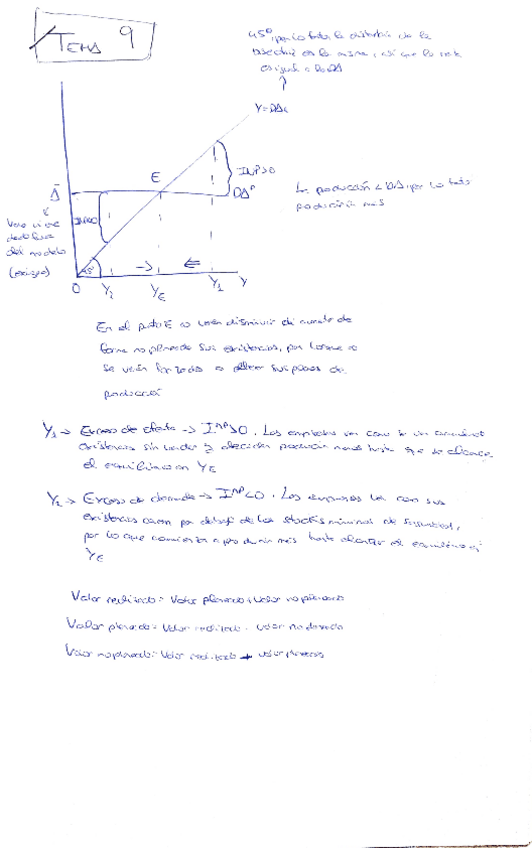 TEMA 9
45º, por lo tanto la distancia de la
bisectriz es la misma, así que la renta
es igual a la DA
Y=DAc
INP>0
E
Ā
DAP
La producción < DA, por lo tanto
producirán más
Valor viene
del modelo
(exógeno)
INP<0
45º
O Y2 YE Y1 Y
En el punto E no verán disminuir ni aumentar de
forma no planeada sus existencias, por lo que no
se verán forzados a alterar sus planes de
producción
Y1 → Exceso de oferta → INP>0. Las empresas ven como se van acumulando
existencias sin vender y deciden producir menos hasta que se alcance
el equilibrio en YE
Y2 → Exceso de demanda → INP<0. Las empresas ven como sus
existencias caen por debajo de los stocks mínimos de seguridad,
por lo que comienzan a producir más hasta alcanzar el equilibrio en
YE
Valor realizado = Valor planeado + Valor no planeado
Valor planeado = Valor realizado - Valor no planeado
Valor no planeado = Valor realizado - Valor planeado